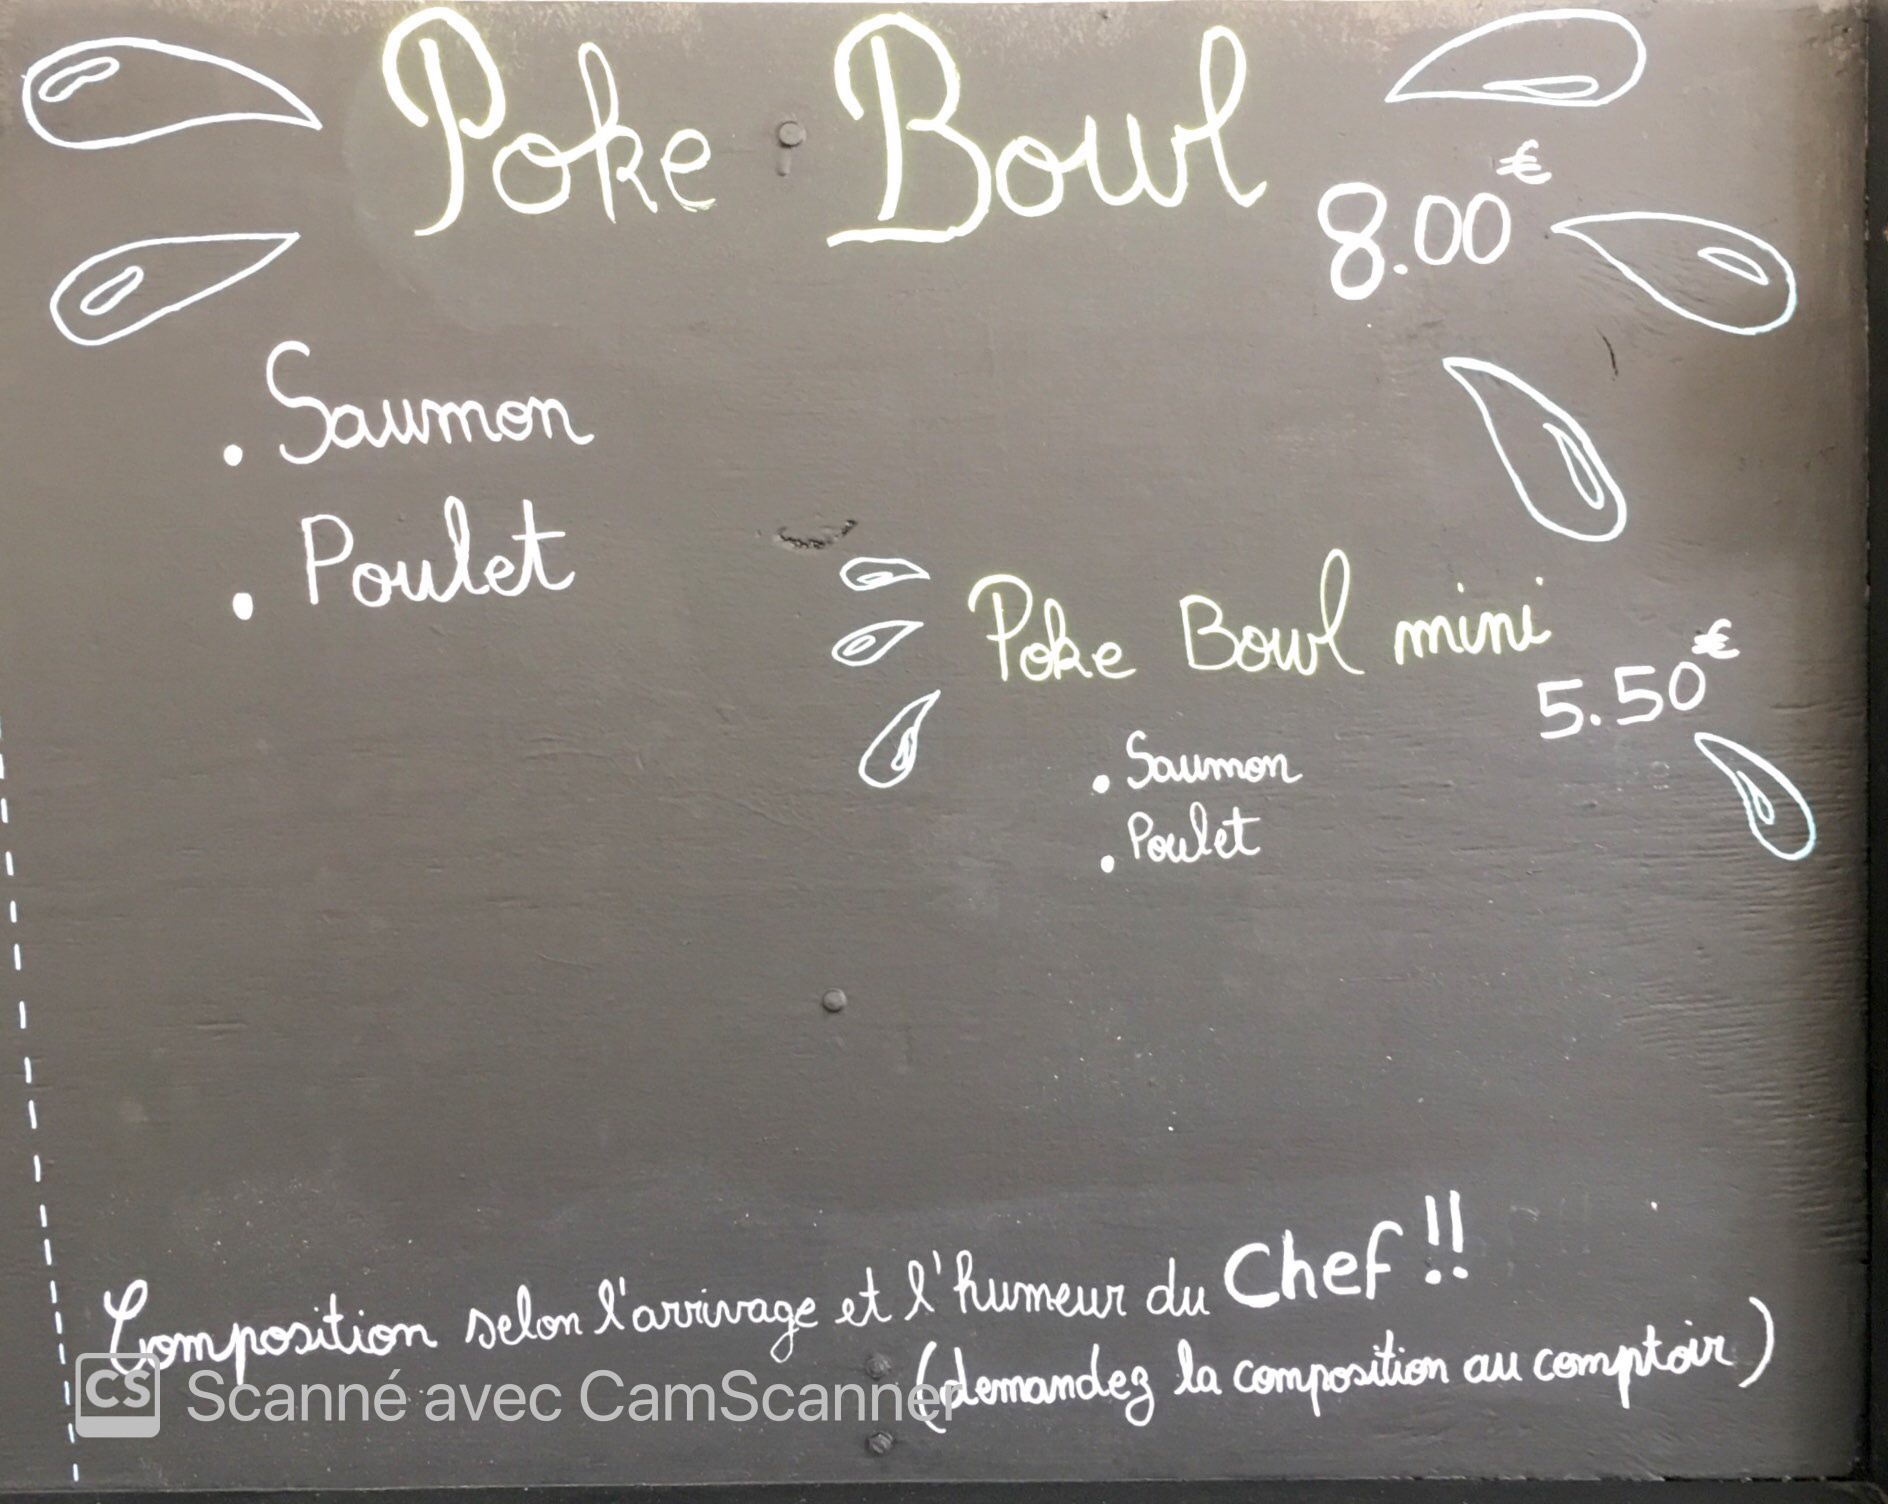 Poke Bowl
8.00€
. Saumon
. Poulet
Poke Bowl mini
5.50€
. Saumon
. Poulet
Composition selon l'arrivage et l'humeur du Chef !!
(demandez la composition au comptoir)
CS Scanné avec CamScanner